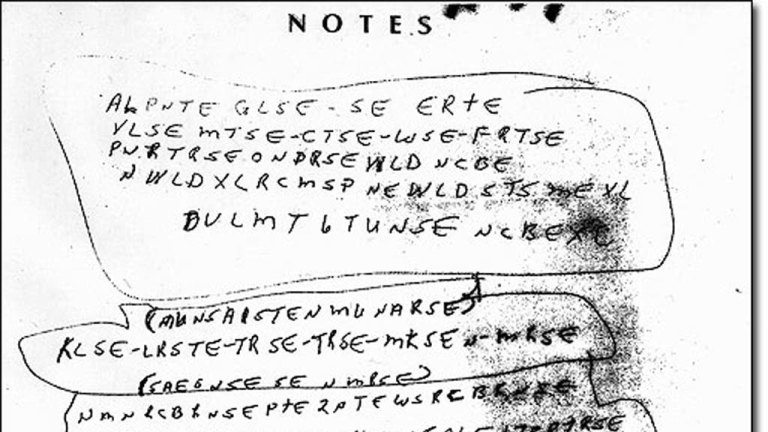 NOTES
ALPNTE GLSE-SE ERTE
VLSE MTSE-CTSE-WSE-FRTSE
PNRTRSEONDRSEWLD NCBE
NWLDXLRCMSP NEWLDSTS MEXL
DULMT6TUNSE NCBEXC
(MUNSAISTENMUNARSE)
KLSE-LRSTE-TRSE-TRSE-MKSEN-MRSE
(SAEGNSESE NMBSE)
NMNRCBRNSEPTE2PTEWSRCBRNSE